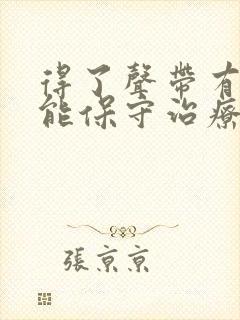 得了聲帶有
能保守治療
張京京